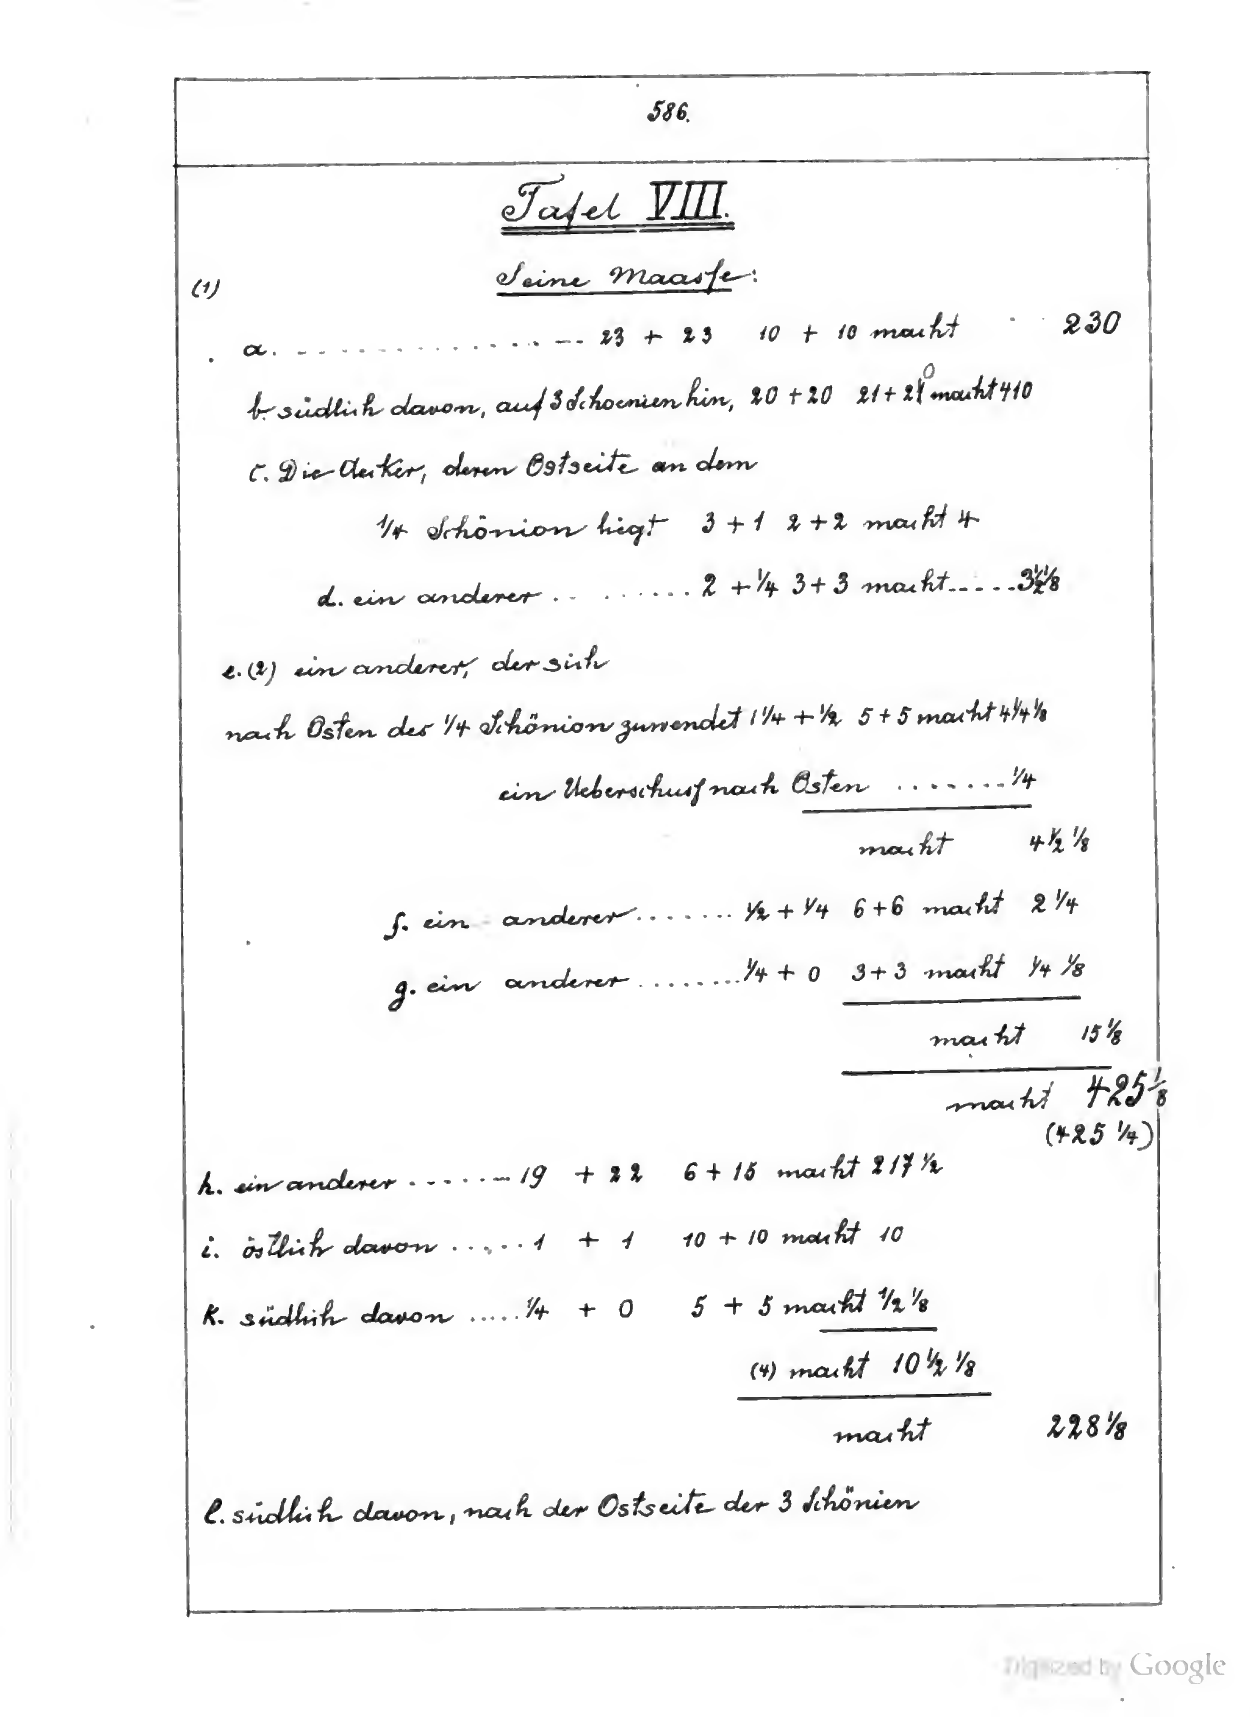 586.
Tafel VIII.
(1) Seine Maasse:
a. .................... 23 + 23 10 + 10 macht 230
b. südlich davon, auf 3 Schoenien hin, 20 + 20 21 + 20 macht 410
c. Die Aecker, deren Ostseite an dem
1/4 Schönion liegt 3 + 1 2 + 2 macht 4
d. ein anderer .. ....... 2 + 1/4 3 + 3 macht ..... 3 1/2 1/8
e. (2) ein anderer, der sich
nach Osten des 1/4 Schönion zuwendet 1 1/4 + 1/2 5 + 5 macht 4 1/4 1/8
ein Ueberschuss nach Osten ....... 1/4
macht 4 1/2 1/8
f. ein anderer ....... 1/2 + 1/4 6 + 6 macht 2 1/4
g. ein anderer ........ 1/4 + 0 3 + 3 macht 1/4 1/8
macht 15 1/8
macht 425 1/8
(425 1/4)
h. ein anderer ....... 19 + 22 6 + 15 macht 217 1/2
i. östlich davon ...... 1 + 1 10 + 10 macht 10
K. südlich davon ..... 1/4 + 0 5 + 5 macht 1/2 1/8
(4) macht 10 1/2 1/8
macht 228 1/8
l. südlich davon, nach der Ostseite der 3 Schönien
Digitized by Google